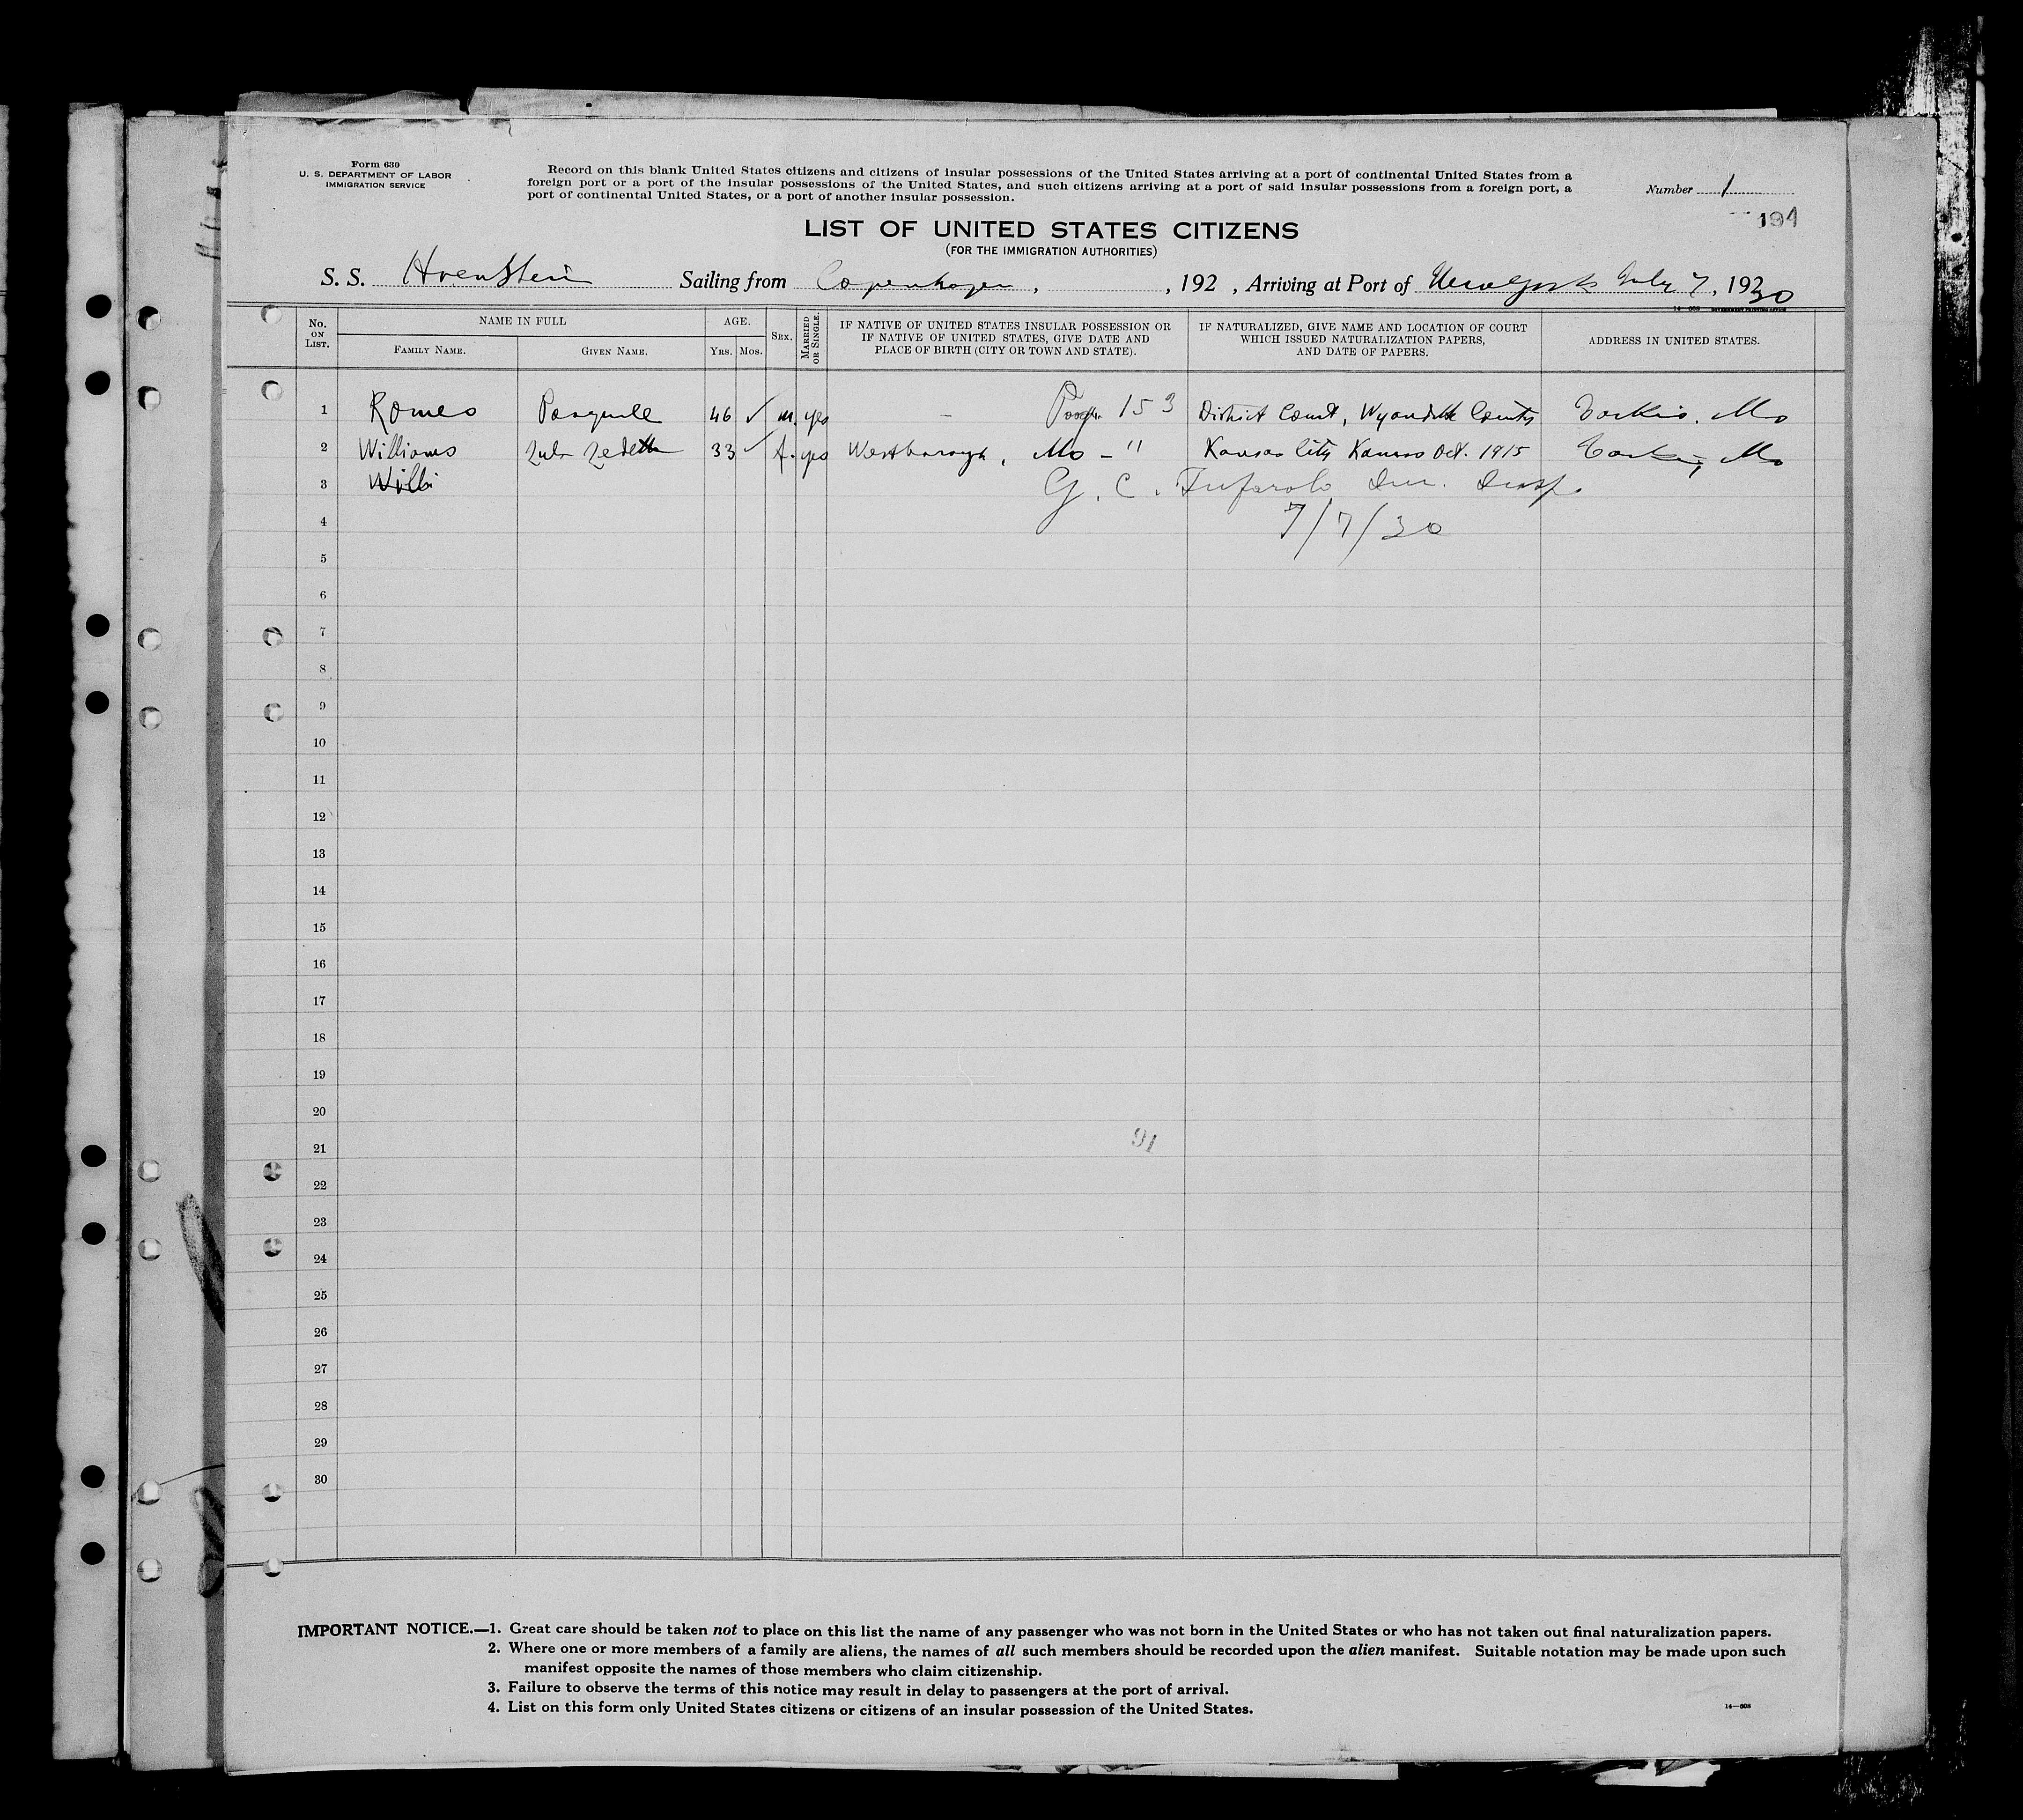 Form 630
U. S. DEPARTMENT OF LABOR
IMMIGRATION SERVICE
Record on this blank United States citizens and citizens of insular possessions of the United States arriving at a port of continental United States from a
foreign port or a port of the insular possessions of the United States, and such citizens arriving at a port of said insular possessions from a foreign port, a
port of continental United States, or a port of another insular possession.
Number 1
194
LIST OF UNITED STATES CITIZENS
(FOR THE IMMIGRATION AUTHORITIES)
S. S. Sailing from Copenhagen , , 192 , Arriving at Port of New York July 7, 1930
No. ON LIST. NAME IN FULL FAMILY NAME. GIVEN NAME. AGE. YRS. MOS. SEX. MARRIED OR SINGLE. IF NATIVE OF UNITED STATES INSULAR POSSESSION OR IF NATIVE OF UNITED STATES, GIVE DATE AND PLACE OF BIRTH (CITY OR TOWN AND STATE). IF NATURALIZED, GIVE NAME AND LOCATION OF COURT WHICH ISSUED NATURALIZATION PAPERS, AND DATE OF PAPERS. ADDRESS IN UNITED STATES.
1 Romeo Pasquale 46 ✓ m. yes – 153 District Court, Wyandotte County Mo
2 Williams 33 ✓ f. yes Westborough, Mo – " Kansas City Kansas Oct. 1915 Mo
3 Willi G. C.
4 7/7/30
5
6
7
8
9
10
11
12
13
14
15
16
17
18
19
20
21 91
22
23
24
25
26
27
28
29
30
IMPORTANT NOTICE.—1. Great care should be taken not to place on this list the name of any passenger who was not born in the United States or who has not taken out final naturalization papers.
2. Where one or more members of a family are aliens, the names of all such members should be recorded upon the alien manifest. Suitable notation may be made upon such
manifest opposite the names of those members who claim citizenship.
3. Failure to observe the terms of this notice may result in delay to passengers at the port of arrival.
4. List on this form only United States citizens or citizens of an insular possession of the United States.
14—608